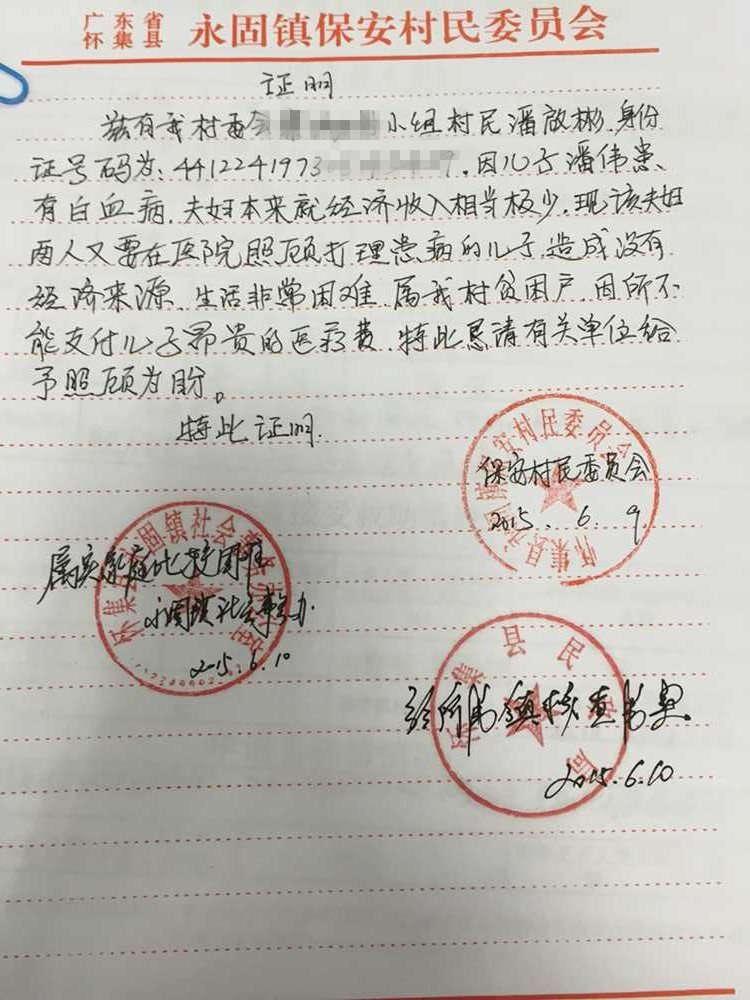 广东省
怀集县
永固镇保安村民委员会
证明
兹有我村委会 小组村民潘放彬,身份
证号码为:4412241973 ,因儿子潘伟患
有白血病,夫妇本来就经济收入相当极少,现该夫妇
两人又要在医院照顾打理患病的儿子,造成没有
经济来源,生活非常困难,属我村贫困户,因所不
能支付儿子昂贵的医疗费,特此恳请有关单位给
予照顾为盼。
特此证明.
怀集县永固镇保安村民委员会
保安村民委员会
2015.6.9
怀集县永固镇社会事务办公室
属实家庭比较困难
永固镇社会事务办
2015.6.10
怀集县民政局
经所属镇核查书案
2015.6.10